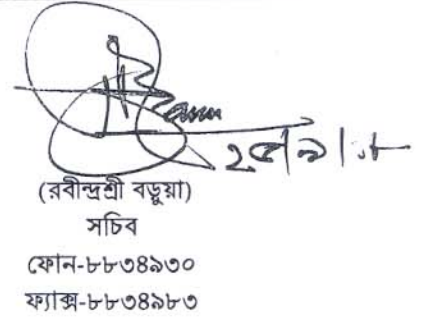 (রবীন্দ্রশ্রী বড়ুয়া)
সচিব
ফোন-৮৮৩৪৯৩০
ফ্যাক্স-৮৮৩৪৯৮৩